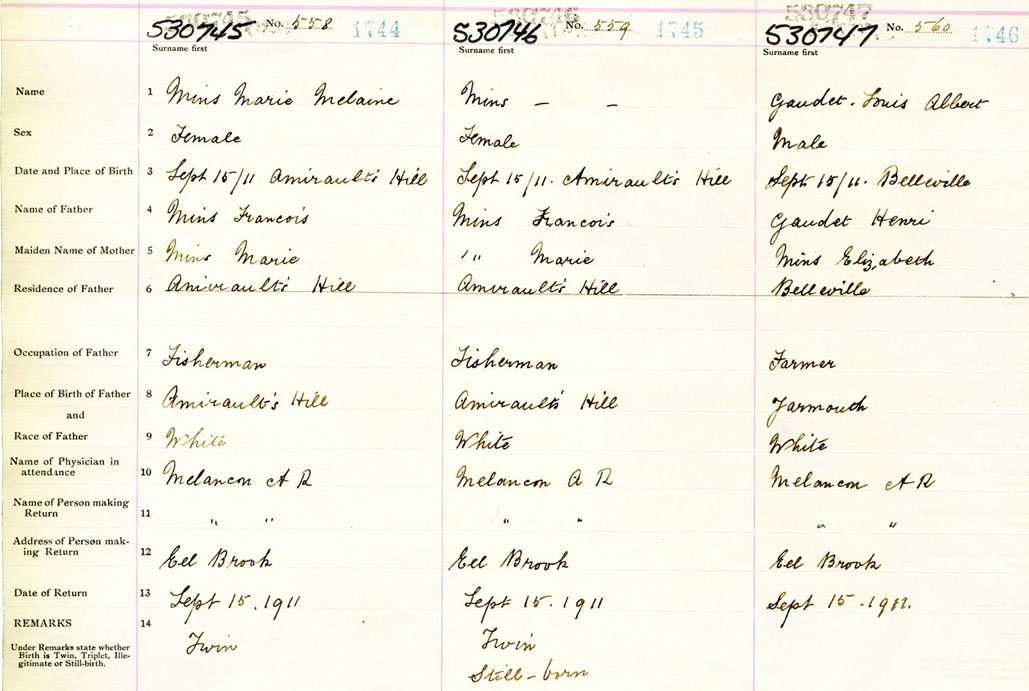 530745 No. 558 1744 530746 No. 559 1745 530747 No. 560 1746
Surname first Surname first Surname first
Name 1 Mins Marie Melaine Mins — — Gaudet. Louis Albert
Sex 2 Female Female Male
Date and Place of Birth 3 Sept 15/11 Amirault's Hill Sept 15/11. Amirault's Hill Sept 15/11. Belleville
Name of Father 4 Mins Francois Mins Francois Gaudet Henri
Maiden Name of Mother 5 Mins Marie " " Marie Mins Elizabeth
Residence of Father 6 Amirault's Hill Amirault's Hill Belleville
Occupation of Father 7 Fisherman Fisherman Farmer
Place of Birth of Father 8 Amirault's Hill Amirault's Hill Yarmouth
and
Race of Father 9 White White White
Name of Physician in
attendance 10 Melancon A R Melancon A R Melancon A R
Name of Person making
Return 11 " " " " " "
Address of Person mak-
ing Return 12 Eel Brook Eel Brook Eel Brook
Date of Return 13 Sept 15. 1911 Sept 15. 1911 Sept 15 - 1911.
REMARKS 14
Under Remarks state whether
Birth is Twin, Triplet, Ille-
gitimate or Still-birth.
Twin Twin
Still-born